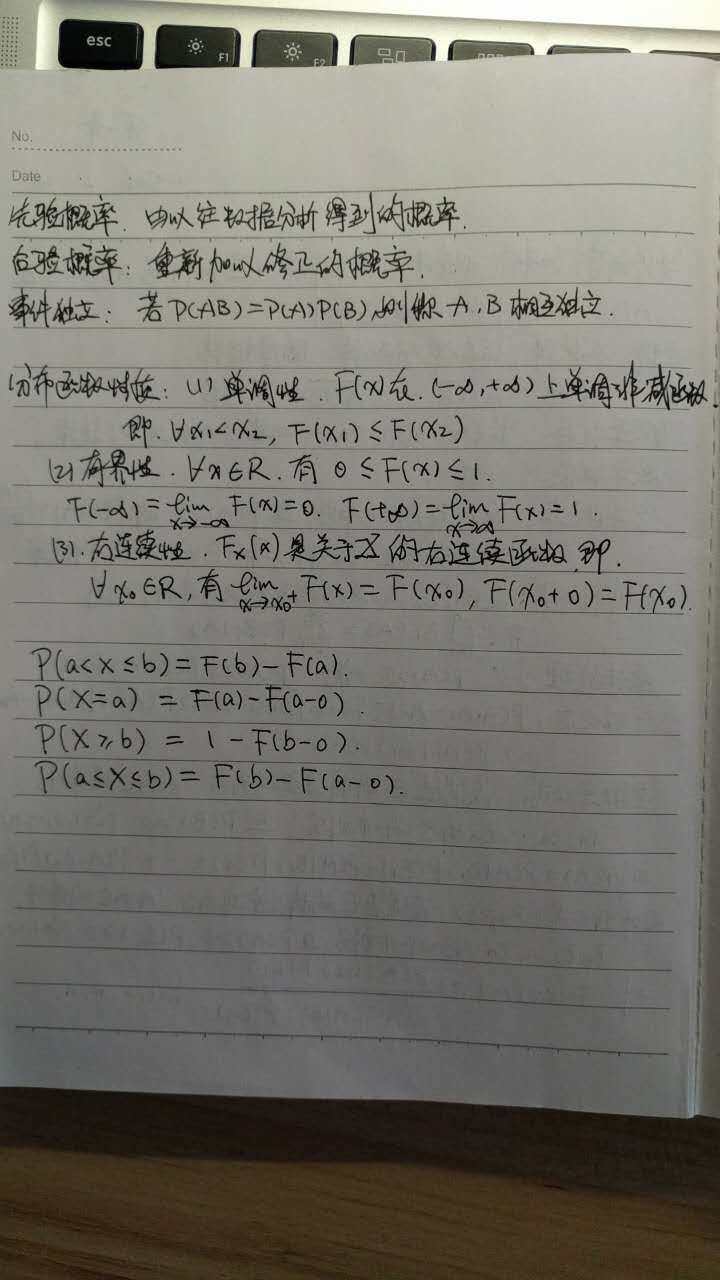 esc
F1
F2
No.
Date
先验概率. 由以往数据分析得到的概率.
后验概率: 重新加以修正的概率.
事件独立: 若P(AB)=P(A)P(B),则称A,B相互独立.
分布函数性质: (1) 单调性. F(x)在(-∞,+∞)上单调非减函数.
即. ∀x₁<x₂, F(x₁)≤F(x₂)
(2) 有界性. ∀x∈R. 有 0≤F(x)≤1.
F(-∞)=lim x→-∞ F(x)=0. F(+∞)=lim x→∞ F(x)=1.
(3). 右连续性. Fx(x)是关于x的右连续函数,即.
∀x₀∈R, 有 lim x→x₀⁺ F(x)=F(x₀), F(x₀+0)=F(x₀).
P(a<x≤b)=F(b)-F(a).
P(X=a)=F(a)-F(a-0).
P(X≥b)=1-F(b-0).
P(a≤X≤b)=F(b)-F(a-0).